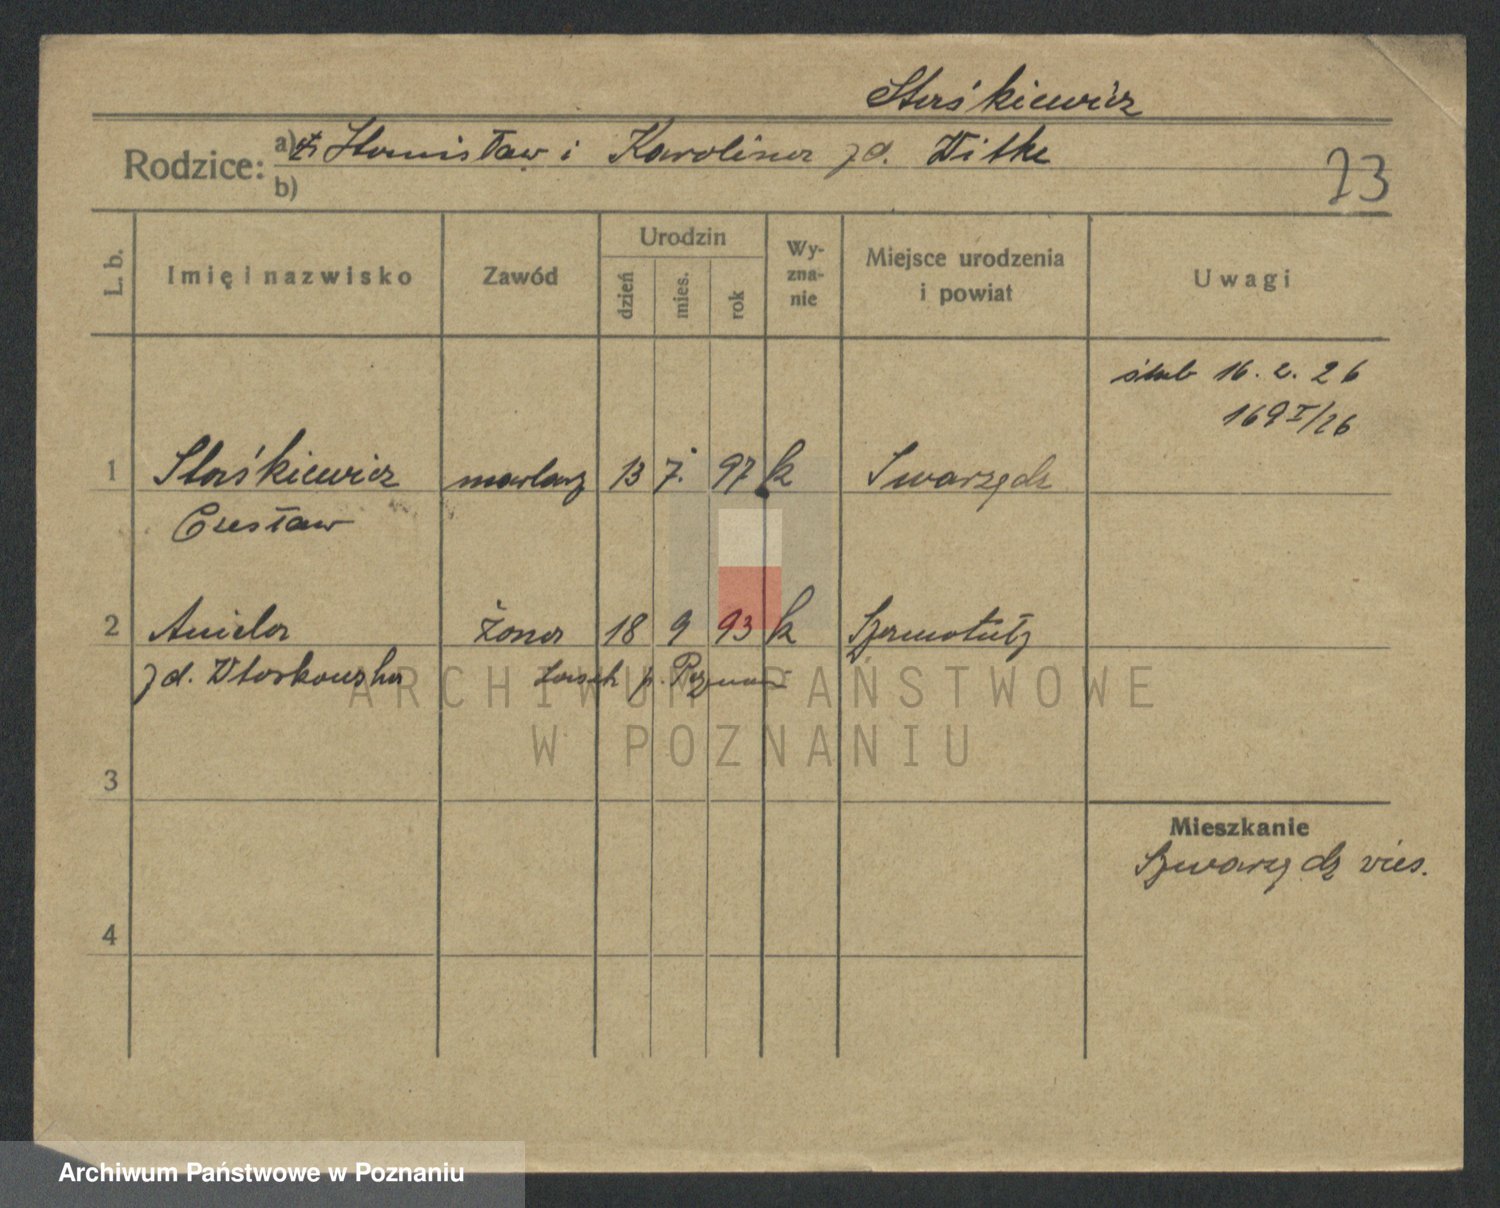 Staśkiewicz
Rodzice: a) Stanisław i Karolina zd. Witke
b)
23
L. b.
Imię i nazwisko
Zawód
Urodzin
dzień
mies.
rok
Wy-
zna-
nie
Miejsce urodzenia
i powiat
Uwagi
ślub 16. 2. 26
169 I/26
1 Staśkiewicz malarz 13 7. 97 k Swarzędz
Czesław
2 Aniela żona 18 9 93 k Szamotuły
zd. Wtorkowska p. Poznań
ARCHIWUM PAŃSTWOWE
W POZNANIU
3
Mieszkanie
Swarzędz
4
Archiwum Państwowe w Poznaniu